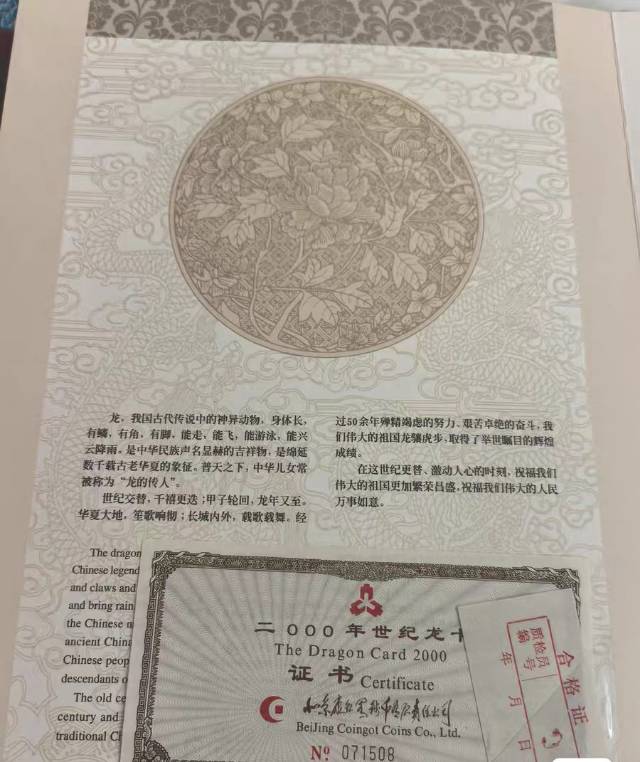 龙，我国古代传说中的神异动物，身体长，
有鳞，有角，有脚，能走，能飞，能游泳，能兴
云降雨。是中华民族声名显赫的吉祥物，是绵延
数千载古老华夏的象征。普天之下，中华儿女常
被称为“龙的传人”。
世纪交替，千禧更迭；甲子轮回，龙年又至。
华夏大地，笙歌响彻；长城内外，载歌载舞。经
过50余年殚精竭虑的努力、艰苦卓绝的奋斗，我
们伟大的祖国龙骧虎步，取得了举世瞩目的辉煌
成绩。
在这世纪更替、激动人心的时刻，祝福我们
伟大的祖国更加繁荣昌盛，祝福我们伟大的人民
万事如意。
The dragon
Chinese legend
and claws and
and bring rain
the Chinese
ancient China
Chinese peop
descendants o
The old ce
century and
traditional C
二000年世纪龙卡
The Dragon Card 2000
证书 Certificate
BeiJing Coingot Coins Co., Ltd.
№ 071508
合格证
质检员
编号
年 月 日